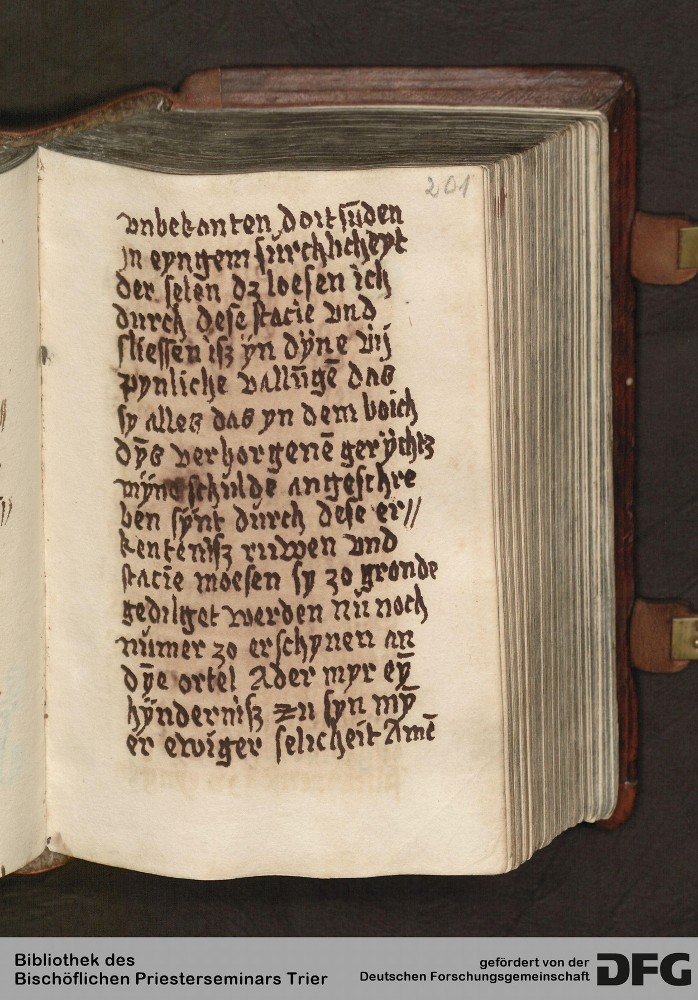 201
vnbekanten doitsūden
jn eyngem furchlicheyt
der selen dz loesen ich
durch dese stacie vnd
sliessen iß yn dyne vij
pynliche vallūgē das
sy alles das yn dem boich
dȳs verhorgenē gerychtz
myne schulde angeschre
ben synt durch dese er//
kentenisz ruwen vnd
stacie moesen sy zo gronde
gedilget werden nu noch
numer zo erschynen an
dȳe ortel Ader myr eȳ
hynderniß zu syn mȳ
er ewiger selicheit Amē
Bibliothek des
Bischöflichen Priesterseminars Trier
gefördert von der
Deutschen Forschungsgemeinschaft
DFG